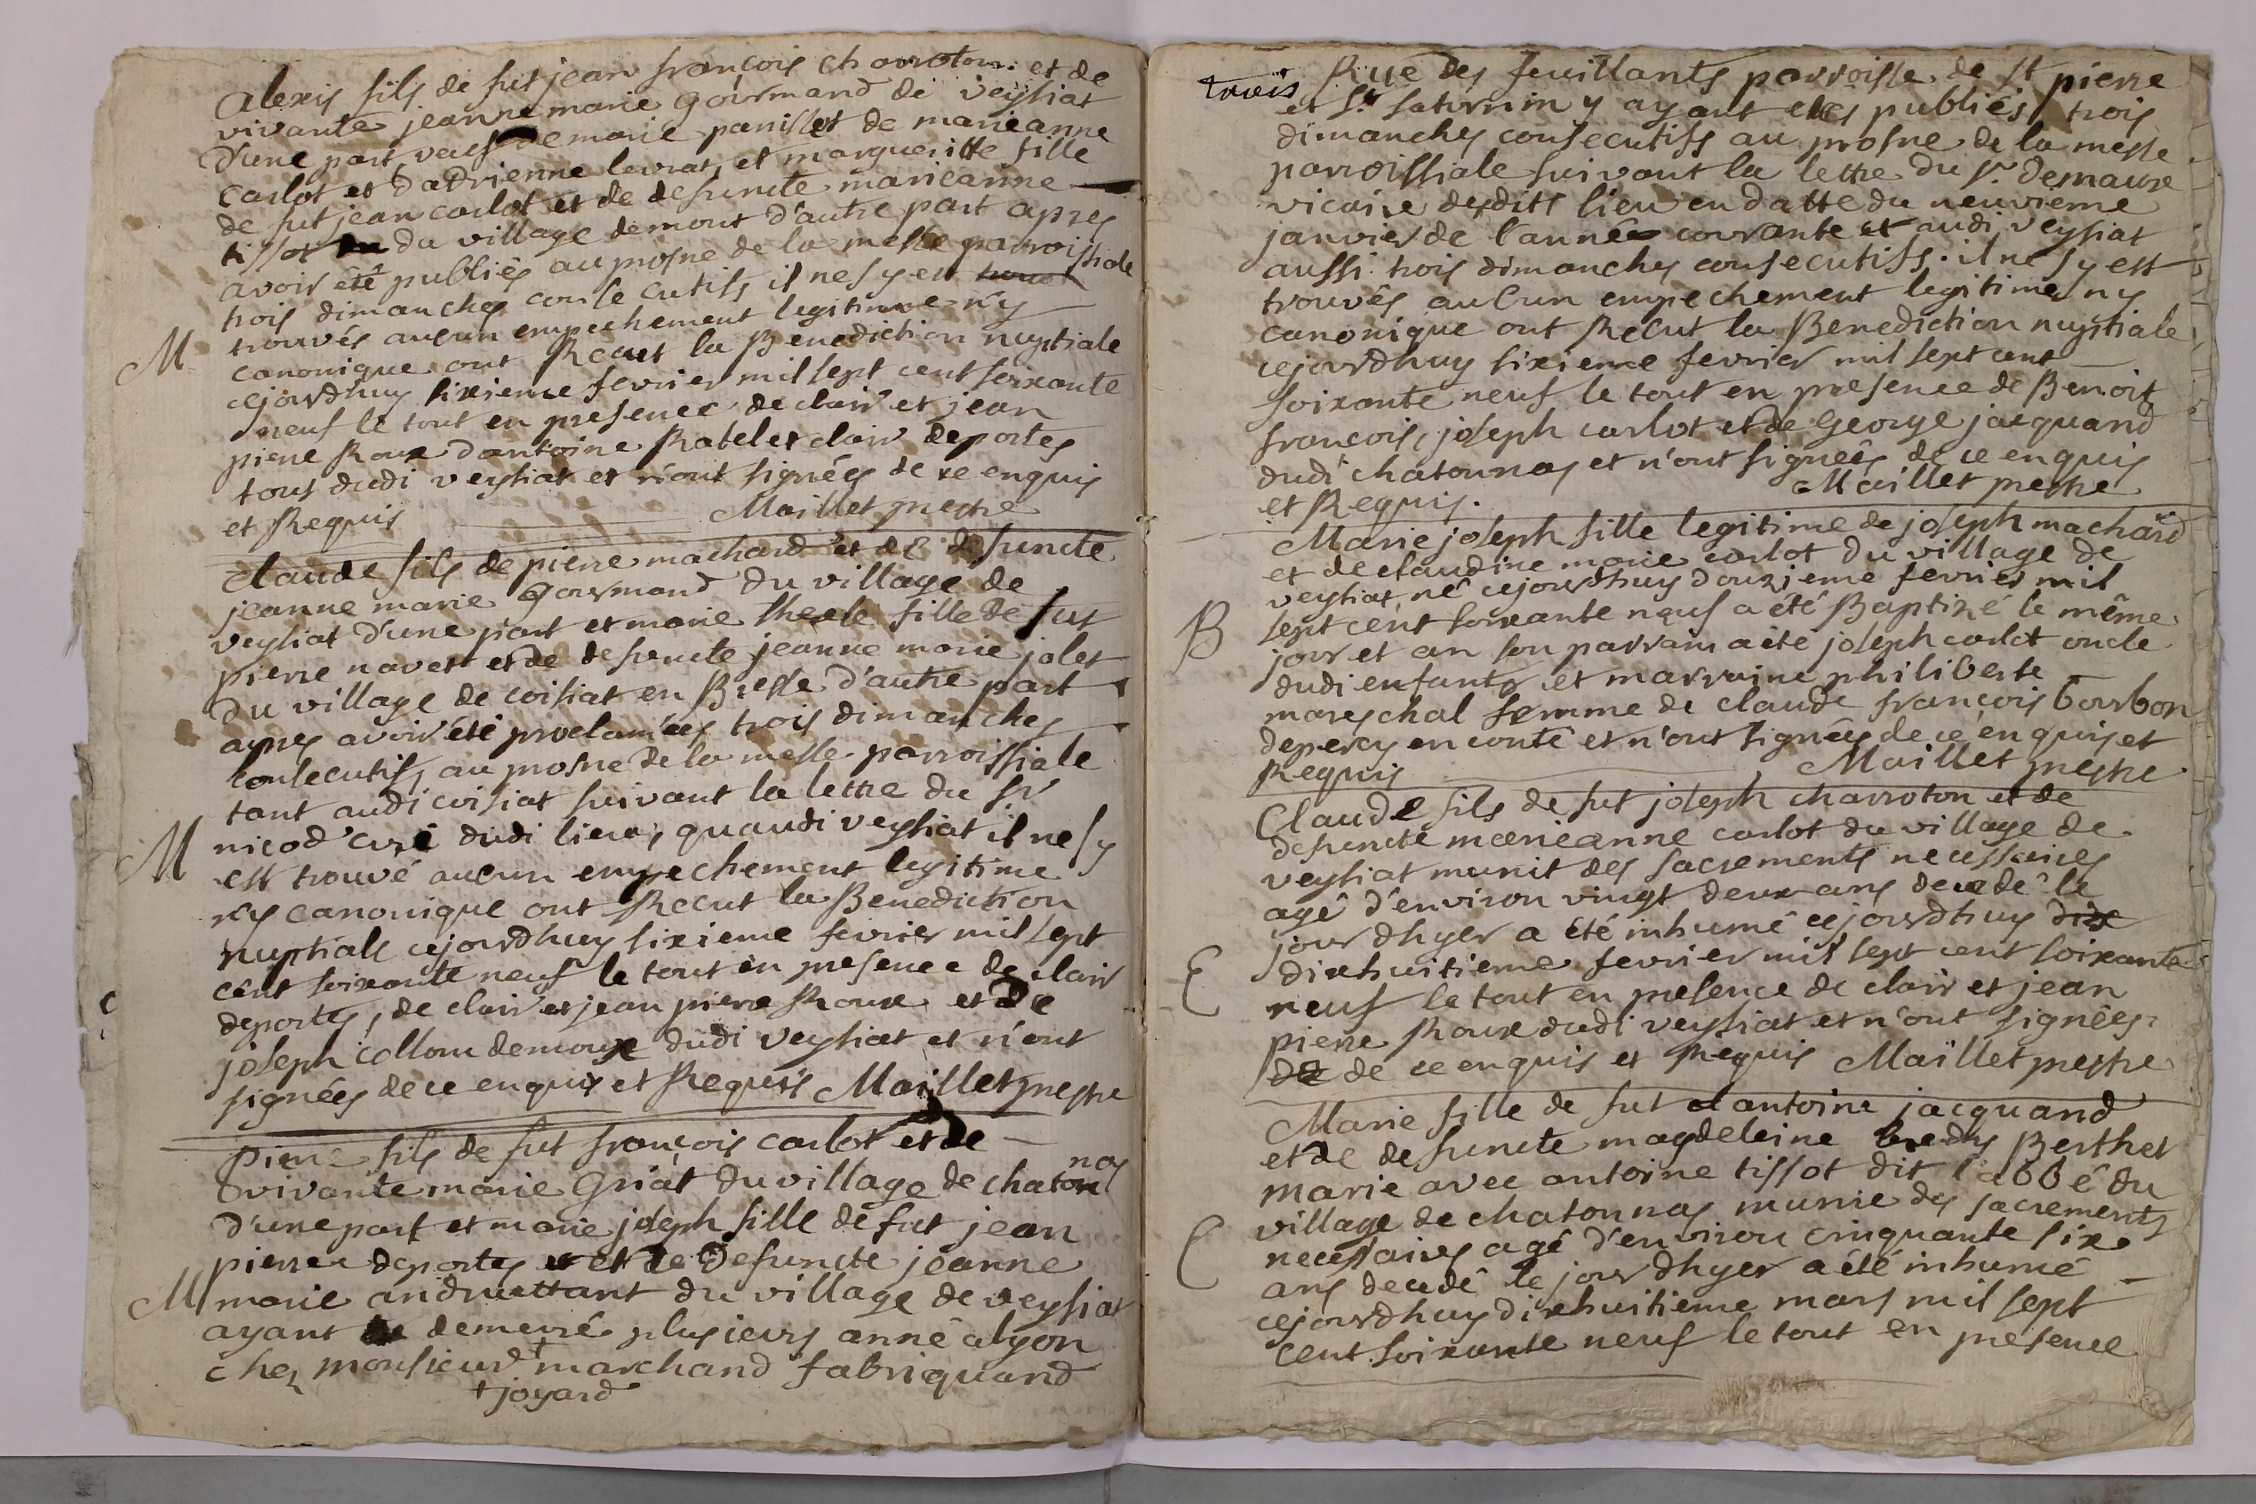 Alexis fils de fut jean françois charroton et de
vivante jeanne marie gourmand de veysiat
d'une part veuf de marie panisset de marieanne
carlot et d'adrienne levrat et margueritte fille
de fut jean carlot et de defuncte marieanne
tissot du village demont d'autre part apres
avoir été publiés au prosne de la messe parroissiale
trois dimanches consecutifs il nesy est
trouvés aucun empechement legitime n'y
M canonique ont Recut la Benediction nuptiale
cejourdhuy sixieme fevrier mil sept cent soixante
neuf le tout en presence de clair et jean
pierre Roux d'antoine Ratelet clair deportes
tous dudi veysiat et n'ont signées de ce enquis
et Requis Maillet prestre
Claude fils de pierre machard et de defuncte
jeanne marie gourmand du village de
veysiat d'une part et marie fille de fut
pierre navet et de defuncte jeanne marie jolet
du village de coisiat en Bresse d'autre part
apres avoir été proclamées trois dimanches
consecutifs au prosne de la messe parroissiale
tant audi coisiat suivant la lettre du Sr
nicod curé dudi lieu, quaudi veysiat il nesy
M est trouvé aucun empechement legitime
n'y canonique ont Recut la Benediction
nuptiale cejourdhuy sixieme fevrier mil sept
cent soixante neuf le tout en presence de clair
deportes, de clair et jean pierre Roux et de
joseph collom demoux dudi veysiat et n'ont
signées de ce enquis et Requis Maillet prestre
pierre fils de fut françois carlot et de
vivante marie griat du village de chatonnas
d'une part et marie joseph fille de fut jean
pierre deportes et de defuncte jeanne
M marie du village de veysiat
ayant demeuré plusieurs anné a lyon
chez monsieur + marchand fabriquand
+ joyard
Rue des feuillants parroisse de St pierre
et St saturnin y ayant etés publiés trois
dimanches consecutifs au prosne de la messe
parroissiale suivant la lettre du Sr demaux
vicaire desdits lieu en datte du neuvieme
janvier de l'année courante et audi veysiat
aussi trois dimanches consecutifs. il nesy est
trouvés aucun empechement legitime ny
canonique ont Recut la Benediction nuptiale
cejourdhuy sixieme fevrier mil sept cent
soixante neuf le tout en presence de Benoit
françois, joseph carlot et de george jacquand
dudi chatonnas et n'ont signées de ce enquis
et Requis. Maillet prestre
Marie joseph fille legitime de joseph machard
et de claudine marie carlot du village de
veysiat né cejourdhuy douzieme fevrier mil
B sept cent soixante neuf a été Baptizé le même
jour et an son parrain a été joseph carlot oncle
dudi enfants et marraine philiberte
mareschal femme de claude françois bourbon
depercy en conté et n'ont signées de ce enquis et
Requis Maillet prestre
Claude fils de fut joseph charroton et de
defuncte marieanne carlot du village de
veysiat munit des sacrements necessaires
agé d'environ vingt deux ans decedé le
jour dhyer a été inhumé cejourdhuy dix
E dixhuitieme fevrier mil sept cent soixante
neuf le tout en presence de clair et jean
pierre Roux dudi veysiat et n'ont signées
de de ce enquis et Requis Maillet prestre
Marie fille de fut antoine jacquand
et de defuncte magdeleine Berthet
marie avec antoine tissot dit l'abbé du
village de chatonnas munie des sacrements
E necessaires agé d'environ cinquante six
ans decedé le jour dhyer a été inhumé
cejourdhuy dixhuitieme mars mil sept
cent soixante neuf le tout en presence